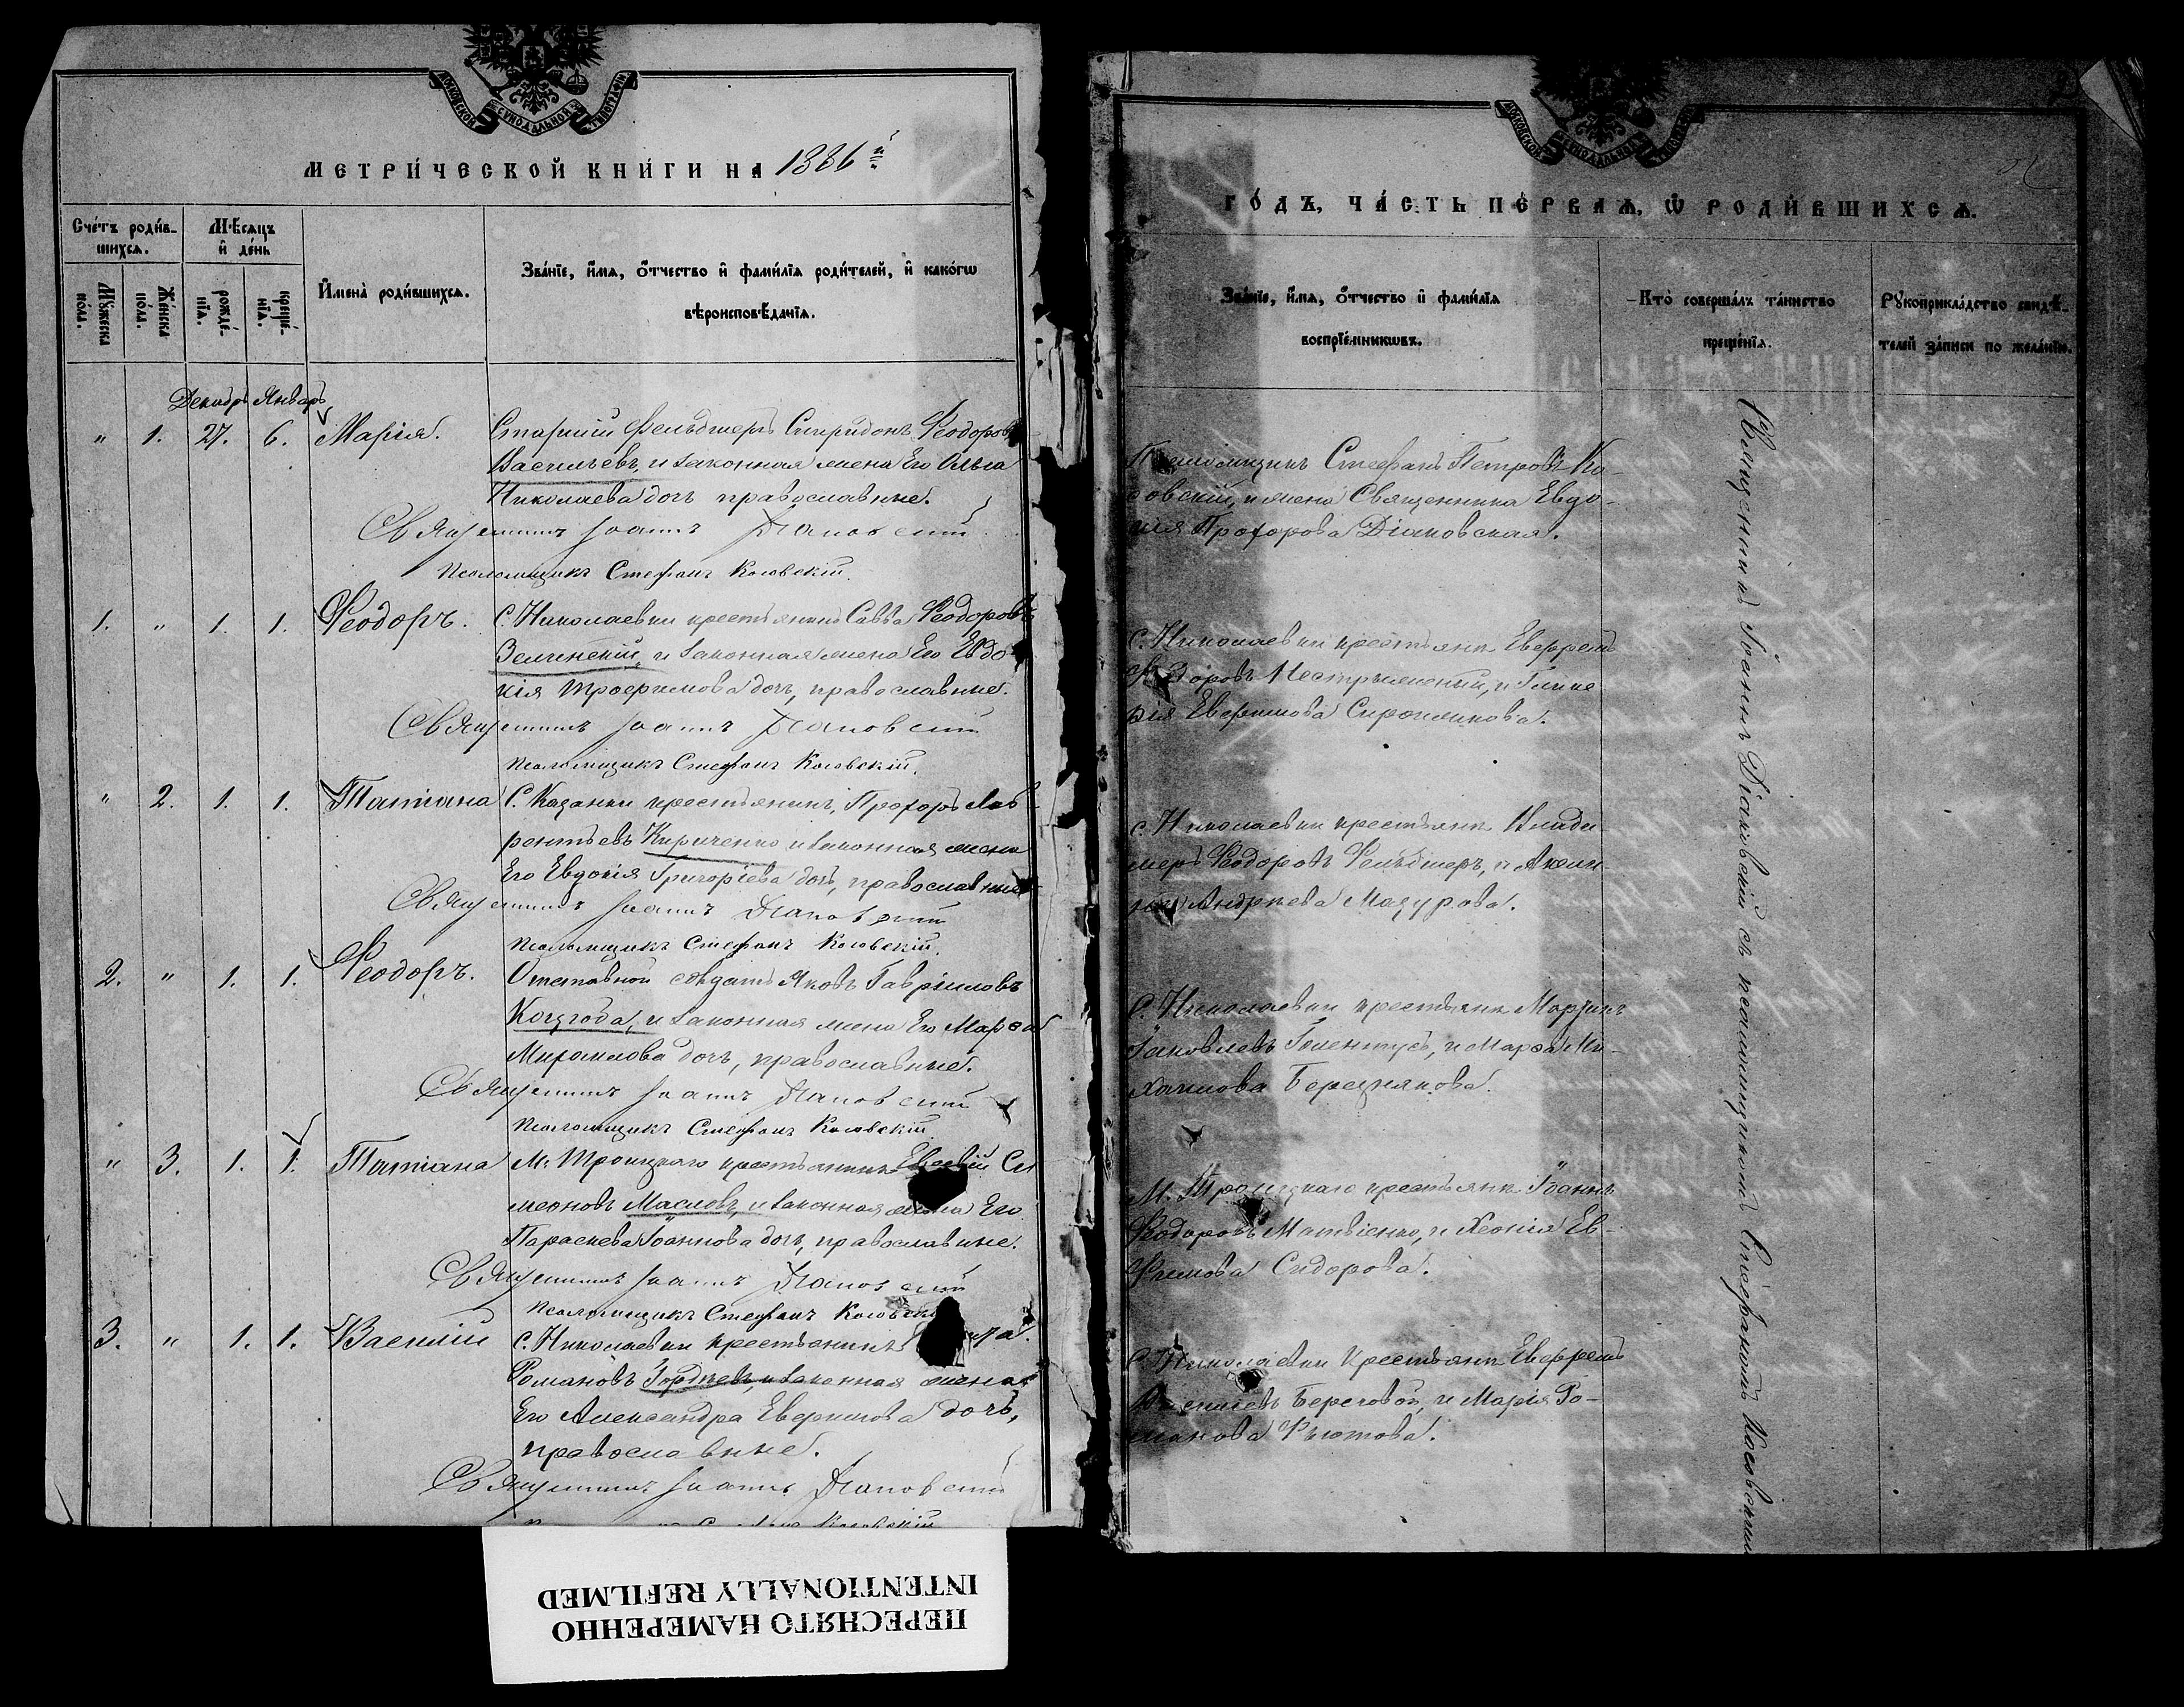 МОСКОВСКОЙ СѴНОДАЛЬНОЙ ТИПОГРАФІИ
МЕТРИ́ЧЕСКОЙ КНИ́ГИ НА 1886й
Сче́тъ роди́в-
шихсѧ.
Мѣ́сѧцъ
и҆ де́нь
Мꙋ́жеска
по́ла.
Же́нска
по́ла.
рожде́-
нїѧ.
креще́-
нїѧ.
И҆мена̀ роди́вшихсѧ.
Зва́нїе, и҆́мѧ, ѻ҆́тчество и҆ фами́лїѧ роди́телей, и҆ како́гѡ
вѣроисповѣ́данїѧ.
Декабрь Январь
" 1. 27. 6. Марія. Старшій Фельдшеръ Спиридонъ Ѳеодоровъ
Васильевъ, и законная жена Его Ольга
Николаева дочь православные.
Священникъ Іоаннъ Діаковскій
Псаломщикъ Стефанъ Косовскій.
1. " 1. 1. Ѳеодоръ. С. Николаевки крестьянинъ Савва Ѳеодоровъ
Зелинскій, и законная жена Его Евдо-
кія Трофимова дочь, православные.
Священникъ Іоаннъ Діаковскій
Псаломщикъ Стефанъ Косовскій.
" 2. 1. 1. Татіана С. Казанки крестьянинъ, Прохоръ Лав-
рентьевъ Кириченко и законная жена
Его Евдокія Григоріева дочь, православные.
Священникъ Іоаннъ Діаковскій
Псаломщикъ Стефанъ Косовскій.
2. " 1. 1. Ѳеодоръ. Отставной солдатъ Яковъ Гавріиловъ
и законная жена Его Марѳа
Михаилова дочь, православные.
Священникъ Іоаннъ Діаковскій
Псаломщикъ Стефанъ Косовскій
" 3. 1. 1. Татіана М. Троицкаго крестьянинъ Си
меоновъ Масловъ, и законная жена Его
Параскева Іоаннова дочь, православные.
Священникъ Іоаннъ Діаковскій
Псаломщикъ Стефанъ Косовскій
3. " 1. 1. Василій С. Николаевки крестьянинъ
Романовъ Гордѣевъ, и законная жена
Его Александра Евфимова дочь,
православные.
Священникъ Іоаннъ Діаковскій
МОСКОВСКОЙ СѴНОДАЛЬНОЙ ТИПОГРАФІИ
ГО́ДЪ, ЧА́СТЬ ПЕ́РВАѦ, Ѡ҆ РОДИ́ВШИХСѦ.
Зва́нїе, и҆́мѧ, ѻ҆́тчество и҆ фами́лїѧ
воспрїе́мникѡвъ.
Кто̀ соверша́лъ та́инство
креще́нїѧ.
Рꙋкоприкла́дство свидѣ́-
телей за́писи по жела́нїю.
Псаломщикъ Стефанъ Петровъ Ко-
совскій, и жена Священника Евдо-
кія Прохорова Діаковская.
С. Николаевки крестьянк. Евфремъ
Ѳеодоровъ и Глике
рія Евфимова
С. Николаевки крестьянк. Влади
меръ Ѳеодоровъ Фельдшеръ, и Акили
на Андреева Мазурова.
С. Николаевки крестьянк. Мартинъ
Іаковлевъ и Марѳа Ми-
хаилова Березнякова.
М. Троицкаго крестьянк. Іоаннъ
Ѳеодоровъ Матвіенко, и Ксенія Ев-
фимова Сидорова.
С. Николаевки крестьянк. Евфремъ
Васильевъ Береговой, и Марія Ро-
манова
Священникъ Іоаннъ Діаковскій съ псаломщикомъ Стефаномъ Косовскимъ
ПЕРЕСНЯТО НАМЕРЕННО
INTENTIONALLY REFILMED